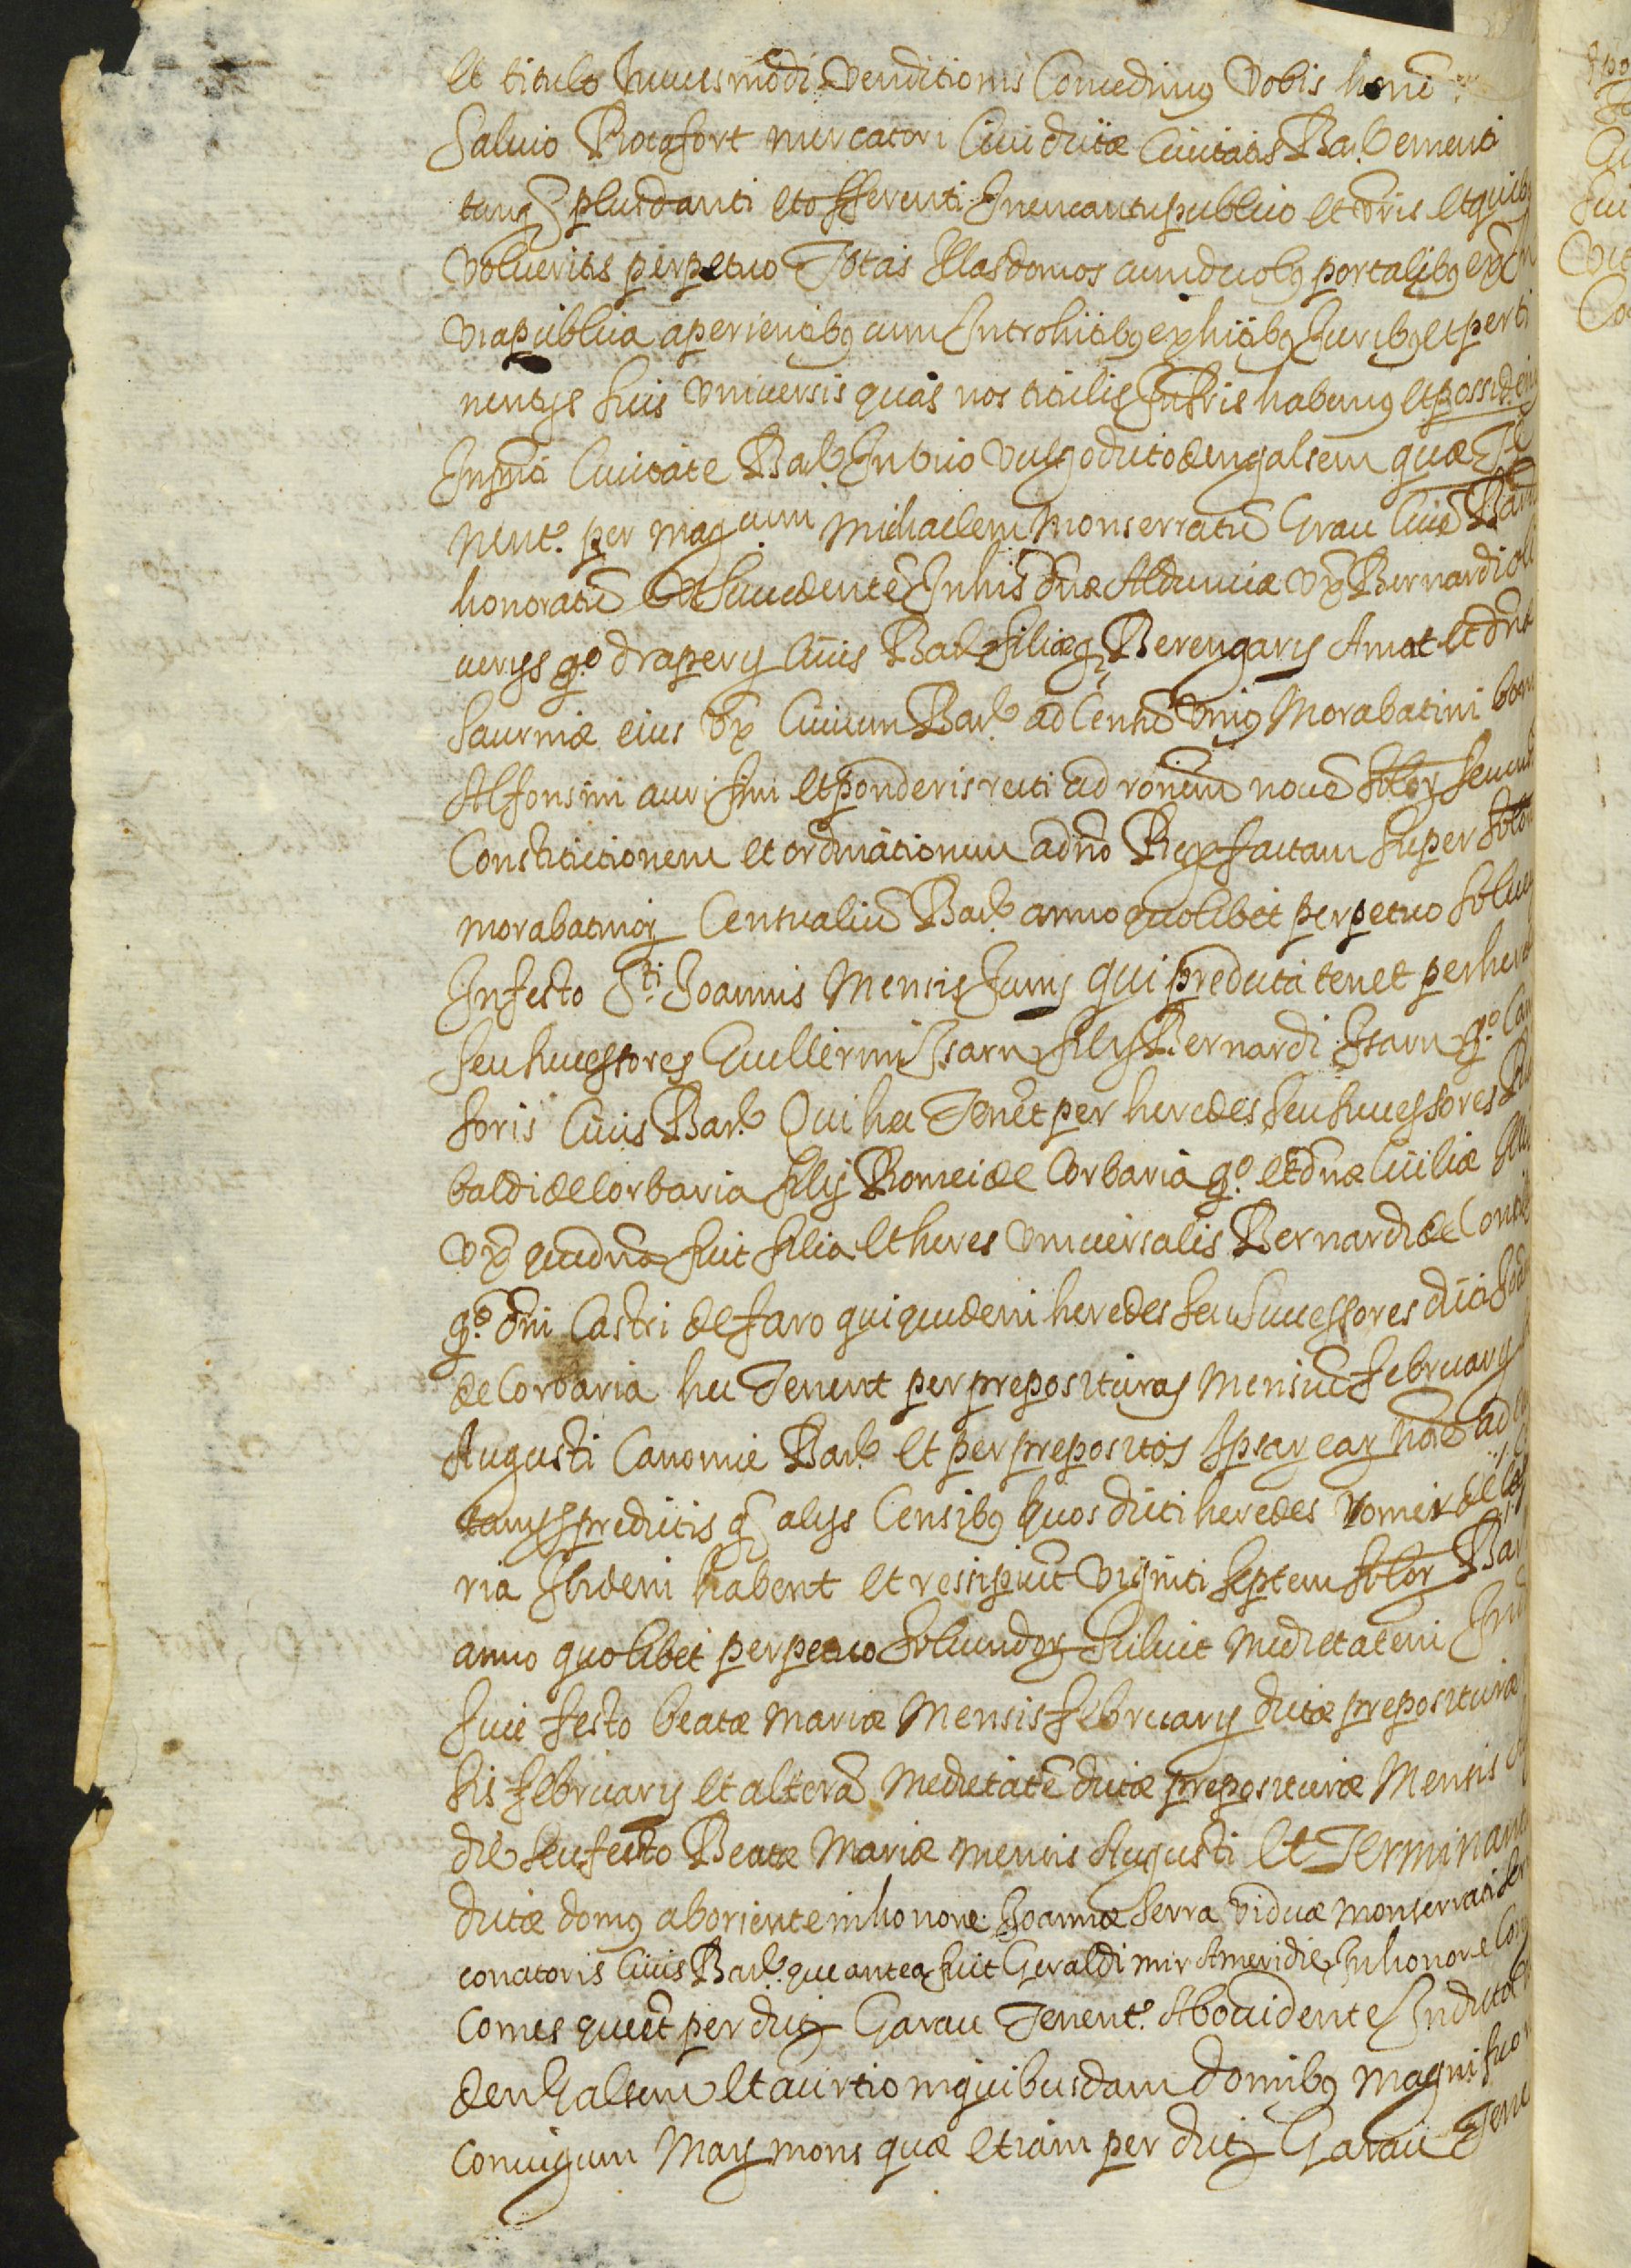 et titulo huiusmodi venditionis Concedimus vobis honc̃
Saluio Rocafort mercatori Ciui dictæ Ciuitatis Barñ ementi
tanq̃ plus danti et offerenti In encantu publico et vr̃is et quibus
volueritis perpetuo Totas Illas domos cum duobus portalibus
via publica aperientibus cum Introhitibus exhitibus Iuribus et perti
nentijs suis vniuersis quas nos titulis Infrĩs habemus et possidem
In pñti Ciuitate Barñ In vico vulgo dicto den galsem quæ
nent.r per mag.cum Michaelem Monserratũ Grau Ciuẽ Barñ
honoratũ Vt succedentẽ In his dñæ Alduncia vx̃ Bernardi oli
uerijs q.º draperij Ciuis Barñ filiæ q̃ Berengarij Amat et dñæ
Saurinæ eius vx̃ Ciuium Barñ ad Censũ vnius Morabatini boni
Alfonsini auri fini et ponderis recti ad ronem nouẽ solor̃ secund
Constitutionem et ordinationem a dño Rege factam super
morabatinor̃ Censualiũ Barñ anno quolibet perpetuo soluen
In festo S.ti Joannis Mensis Junij qui predicta tenet per hered
seu successores Guillermi Isarn filij Bernardi Isarn q.º
soris Ciuis Barñ Qui hec Tenẽt per heredes seu successores
baldi de Corbaria filij Romei de Corbaria q.º et dñæ Ciciliæ
vx̃ que dña fuit filia et heres vniuersalis Bernardi de
q.º dñi Castri de faro qui quidem heredes seu successores dicti
de Corbaria hec Tenent per preposituras Mensiũ februarij
Augusti Canonie Barñ et per prepositos Ipsar̃ ear̃ noĩe ad
tam sp̃redictis q̃ alijs Censibus quos dicti heredes Romei de Cor
ria Ibidem habent et recipiunt viginti septem solor̃ Bar
anno quolibet perpetuo soluendor̃ scilicet Medietatem In
siue festo beatæ Mariæ Mensis februarij dictæ preposituræ
sis februarij et alterã Medietatẽ dictæ prepositurie Mensis
die seu festo Beatæ Mariæ mensis Augusti et Terminant
dictæ domus ab oriente in honore Joannæ Serra viduæ Monserrati
conatoris Ciuis Barñ que antea fuit Geraldi mir A meridie In honore
Comes que et per dict̃ Garau Tenent.r Ab occidente In dicto
den Galsem et a circio in quibusdam domibus magnifico
coniugum Maymons quæ etiam per dict̃ Garau Tene